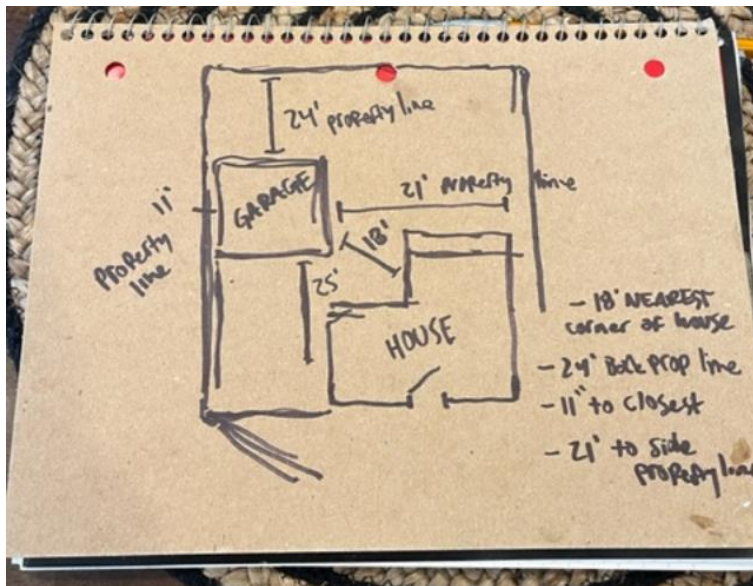 24' property line
GARAGE
11"
property line
21' property line
18'
25'
HOUSE
- 18' NEAREST
corner of house
- 24' Back prop line
- 11" to closest
- 21' to side
property line